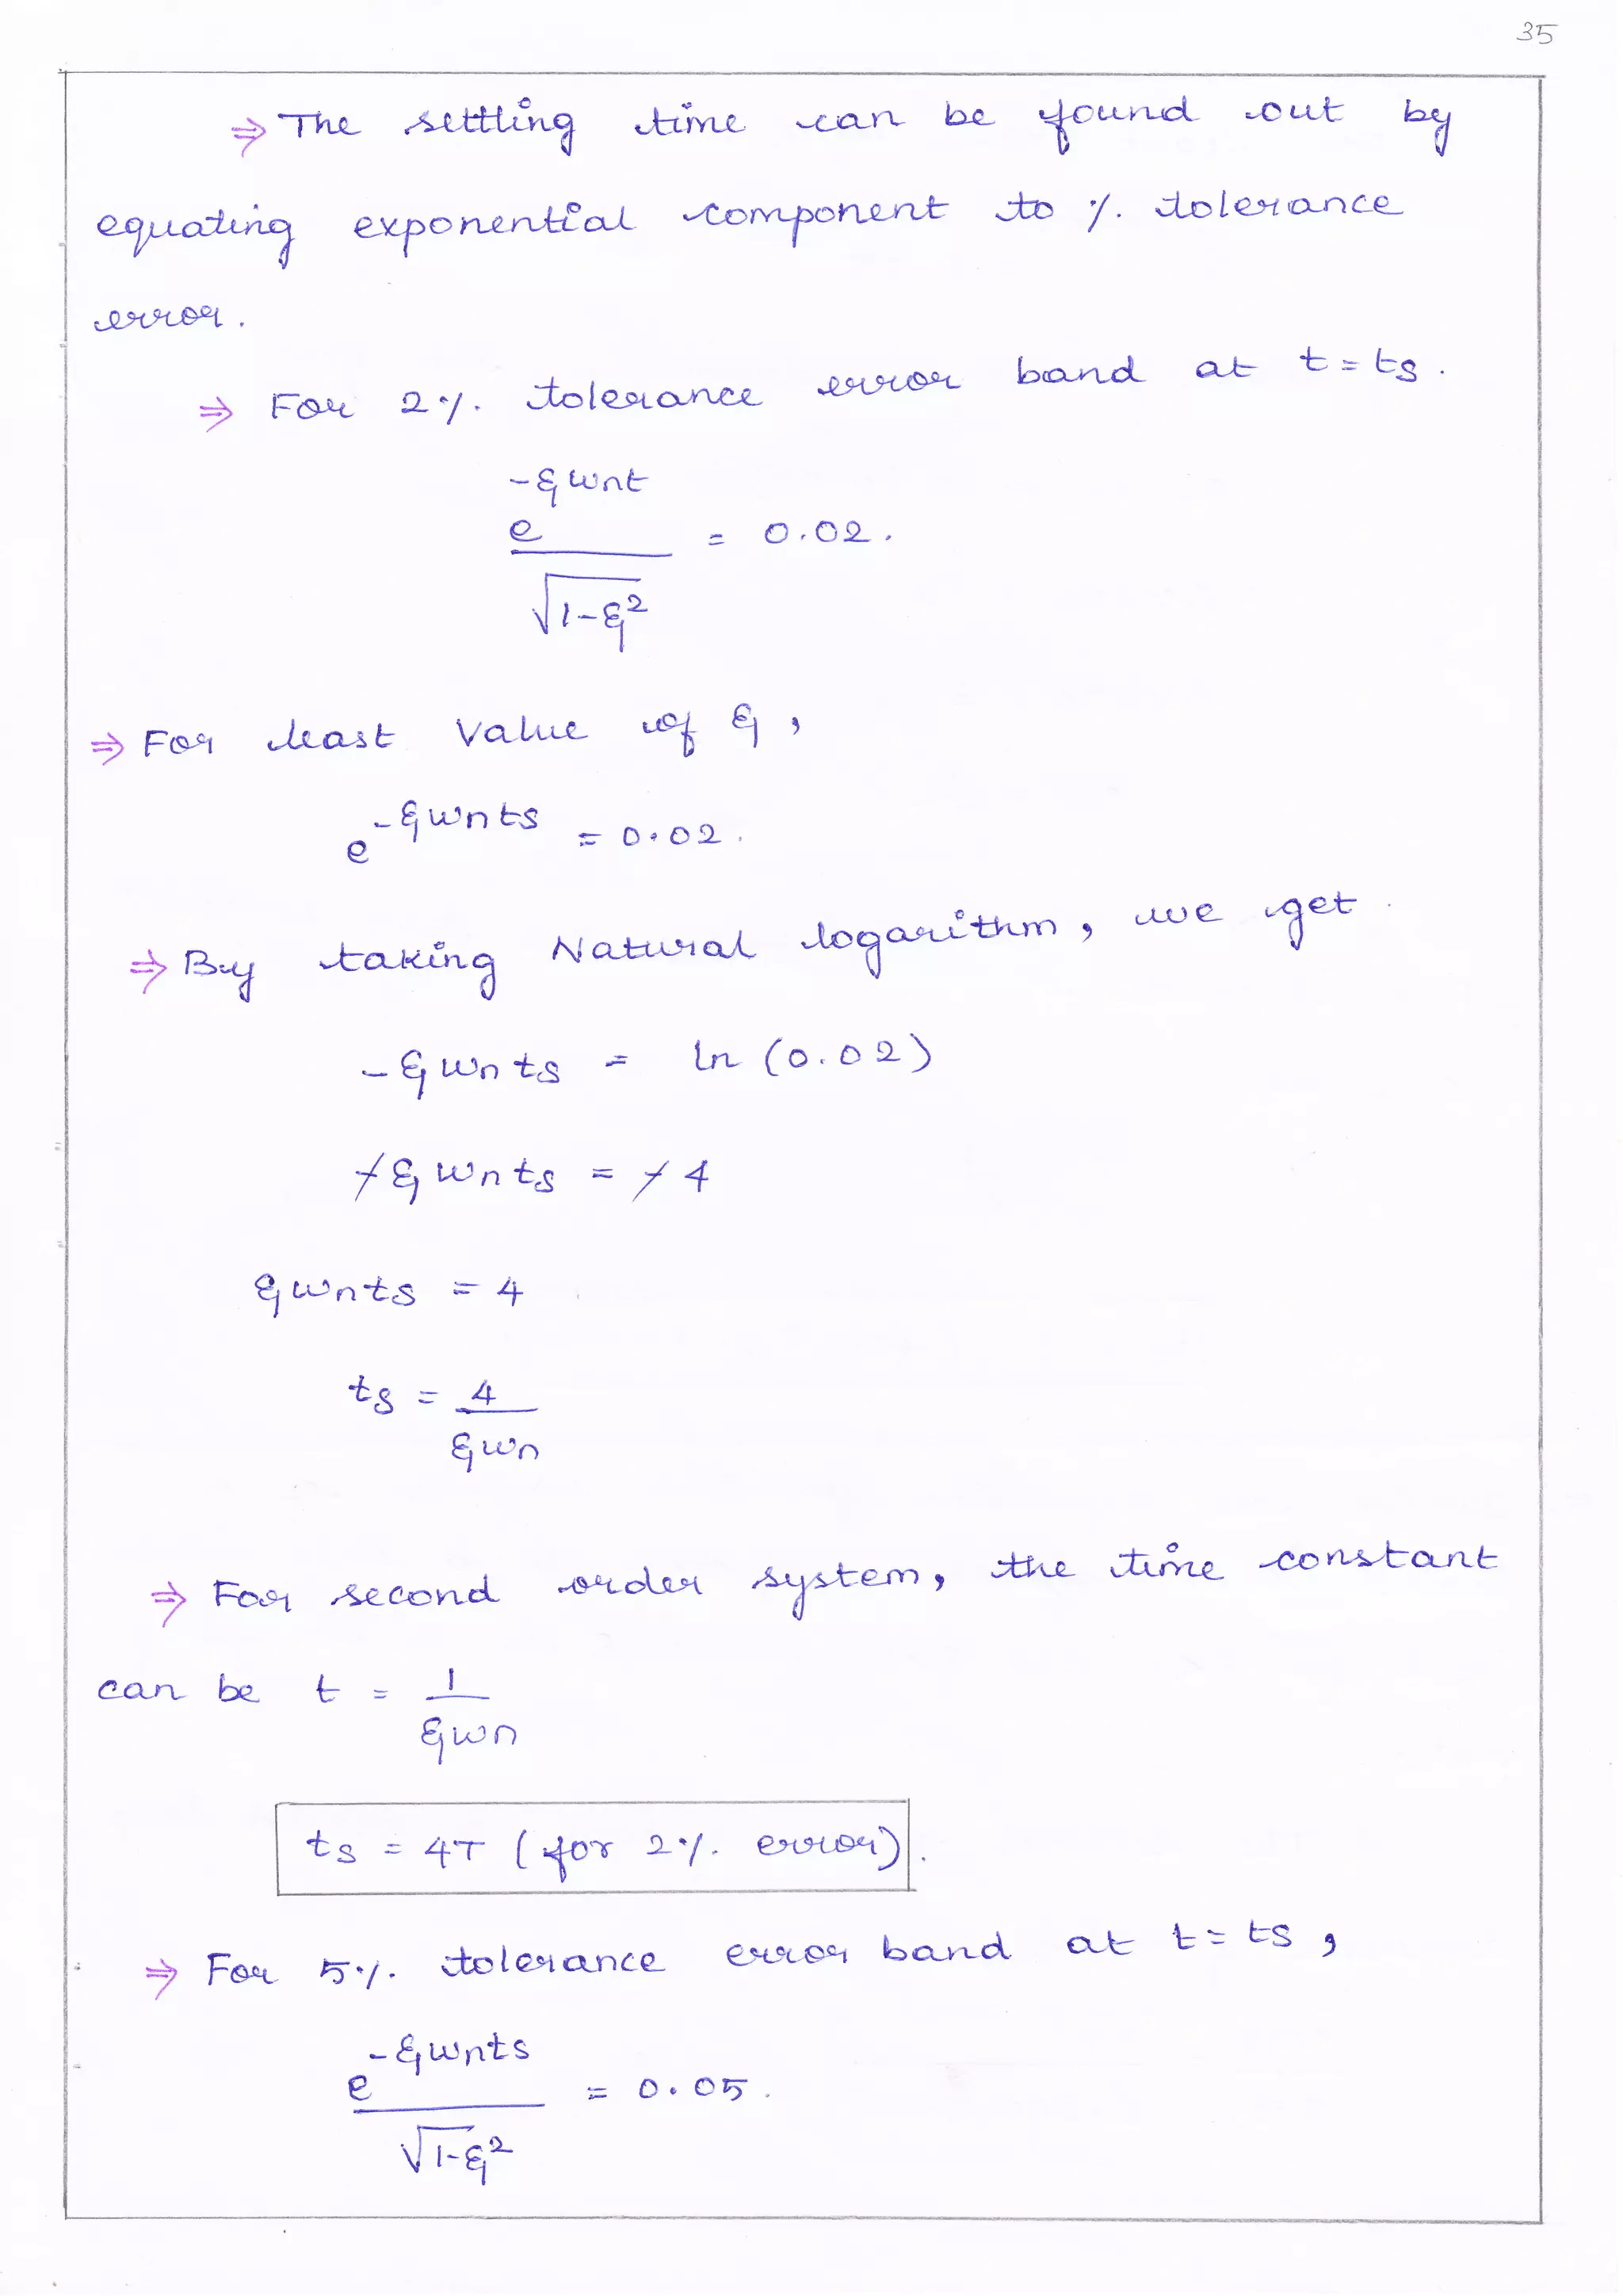 35
⇒ The settling time can be found out by
equating exponential component to % tolerance
error.
⇒ For 2%. tolerance error band at t = ts.
e^-ξωnt / √1-ξ² = 0.02.
⇒ For least value of ξ,
e^-ξωnts = 0.02.
⇒ By taking Natural logarithm, we get
-ξωnts = ln (0.02)
-ξωnts = -4
ξωnts = 4
ts = 4 / ξωn
⇒ For second order system, the time constant
can be t = 1 / ξωn
ts = 4T (for 2%. error).
⇒ For 5%. tolerance error band at t = ts,
e^-ξωnts / √1-ξ² = 0.05.